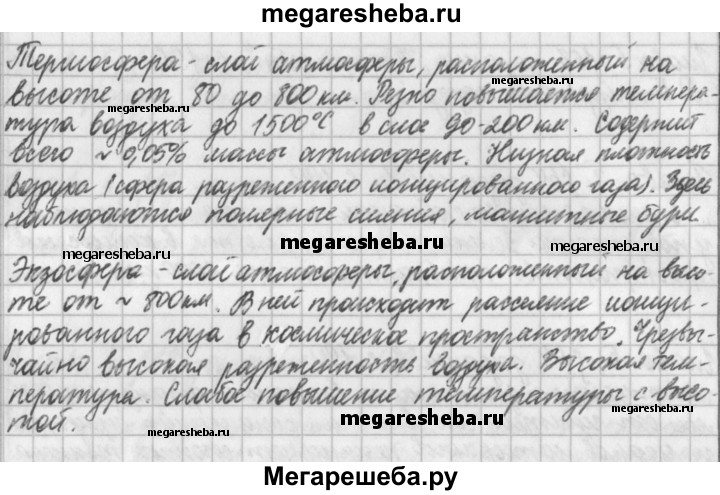 megaresheba.ru
Термосфера - слой атмосферы, расположенный на
высоте от 80 до 800 км. Резко повышается темпера-
megaresheba.ru
megaresheba.ru
тура воздуха до 1500°С в слое 90-200 км. Содержит
всего ~ 0,05% массы атмосферы. Низкая плотность
воздуха (сфера разреженного ионизированного газа). Здесь
наблюдаются полярные сияния, магнитные бури.
megaresheba.ru
megaresheba.ru
Экзосфера - слой атмосферы, расположенный на высо-
те от ~ 800 км. В ней происходит рассеяние ионизи-
рованного газа в космическое пространство. Чрезвы-
чайно высокая разреженность воздуха. Высокая тем-
пература. Слабое повышение температуры с высо-
megaresheba.ru
той.
megaresheba.ru
megaresheba.ru
Мегарешеба.ру